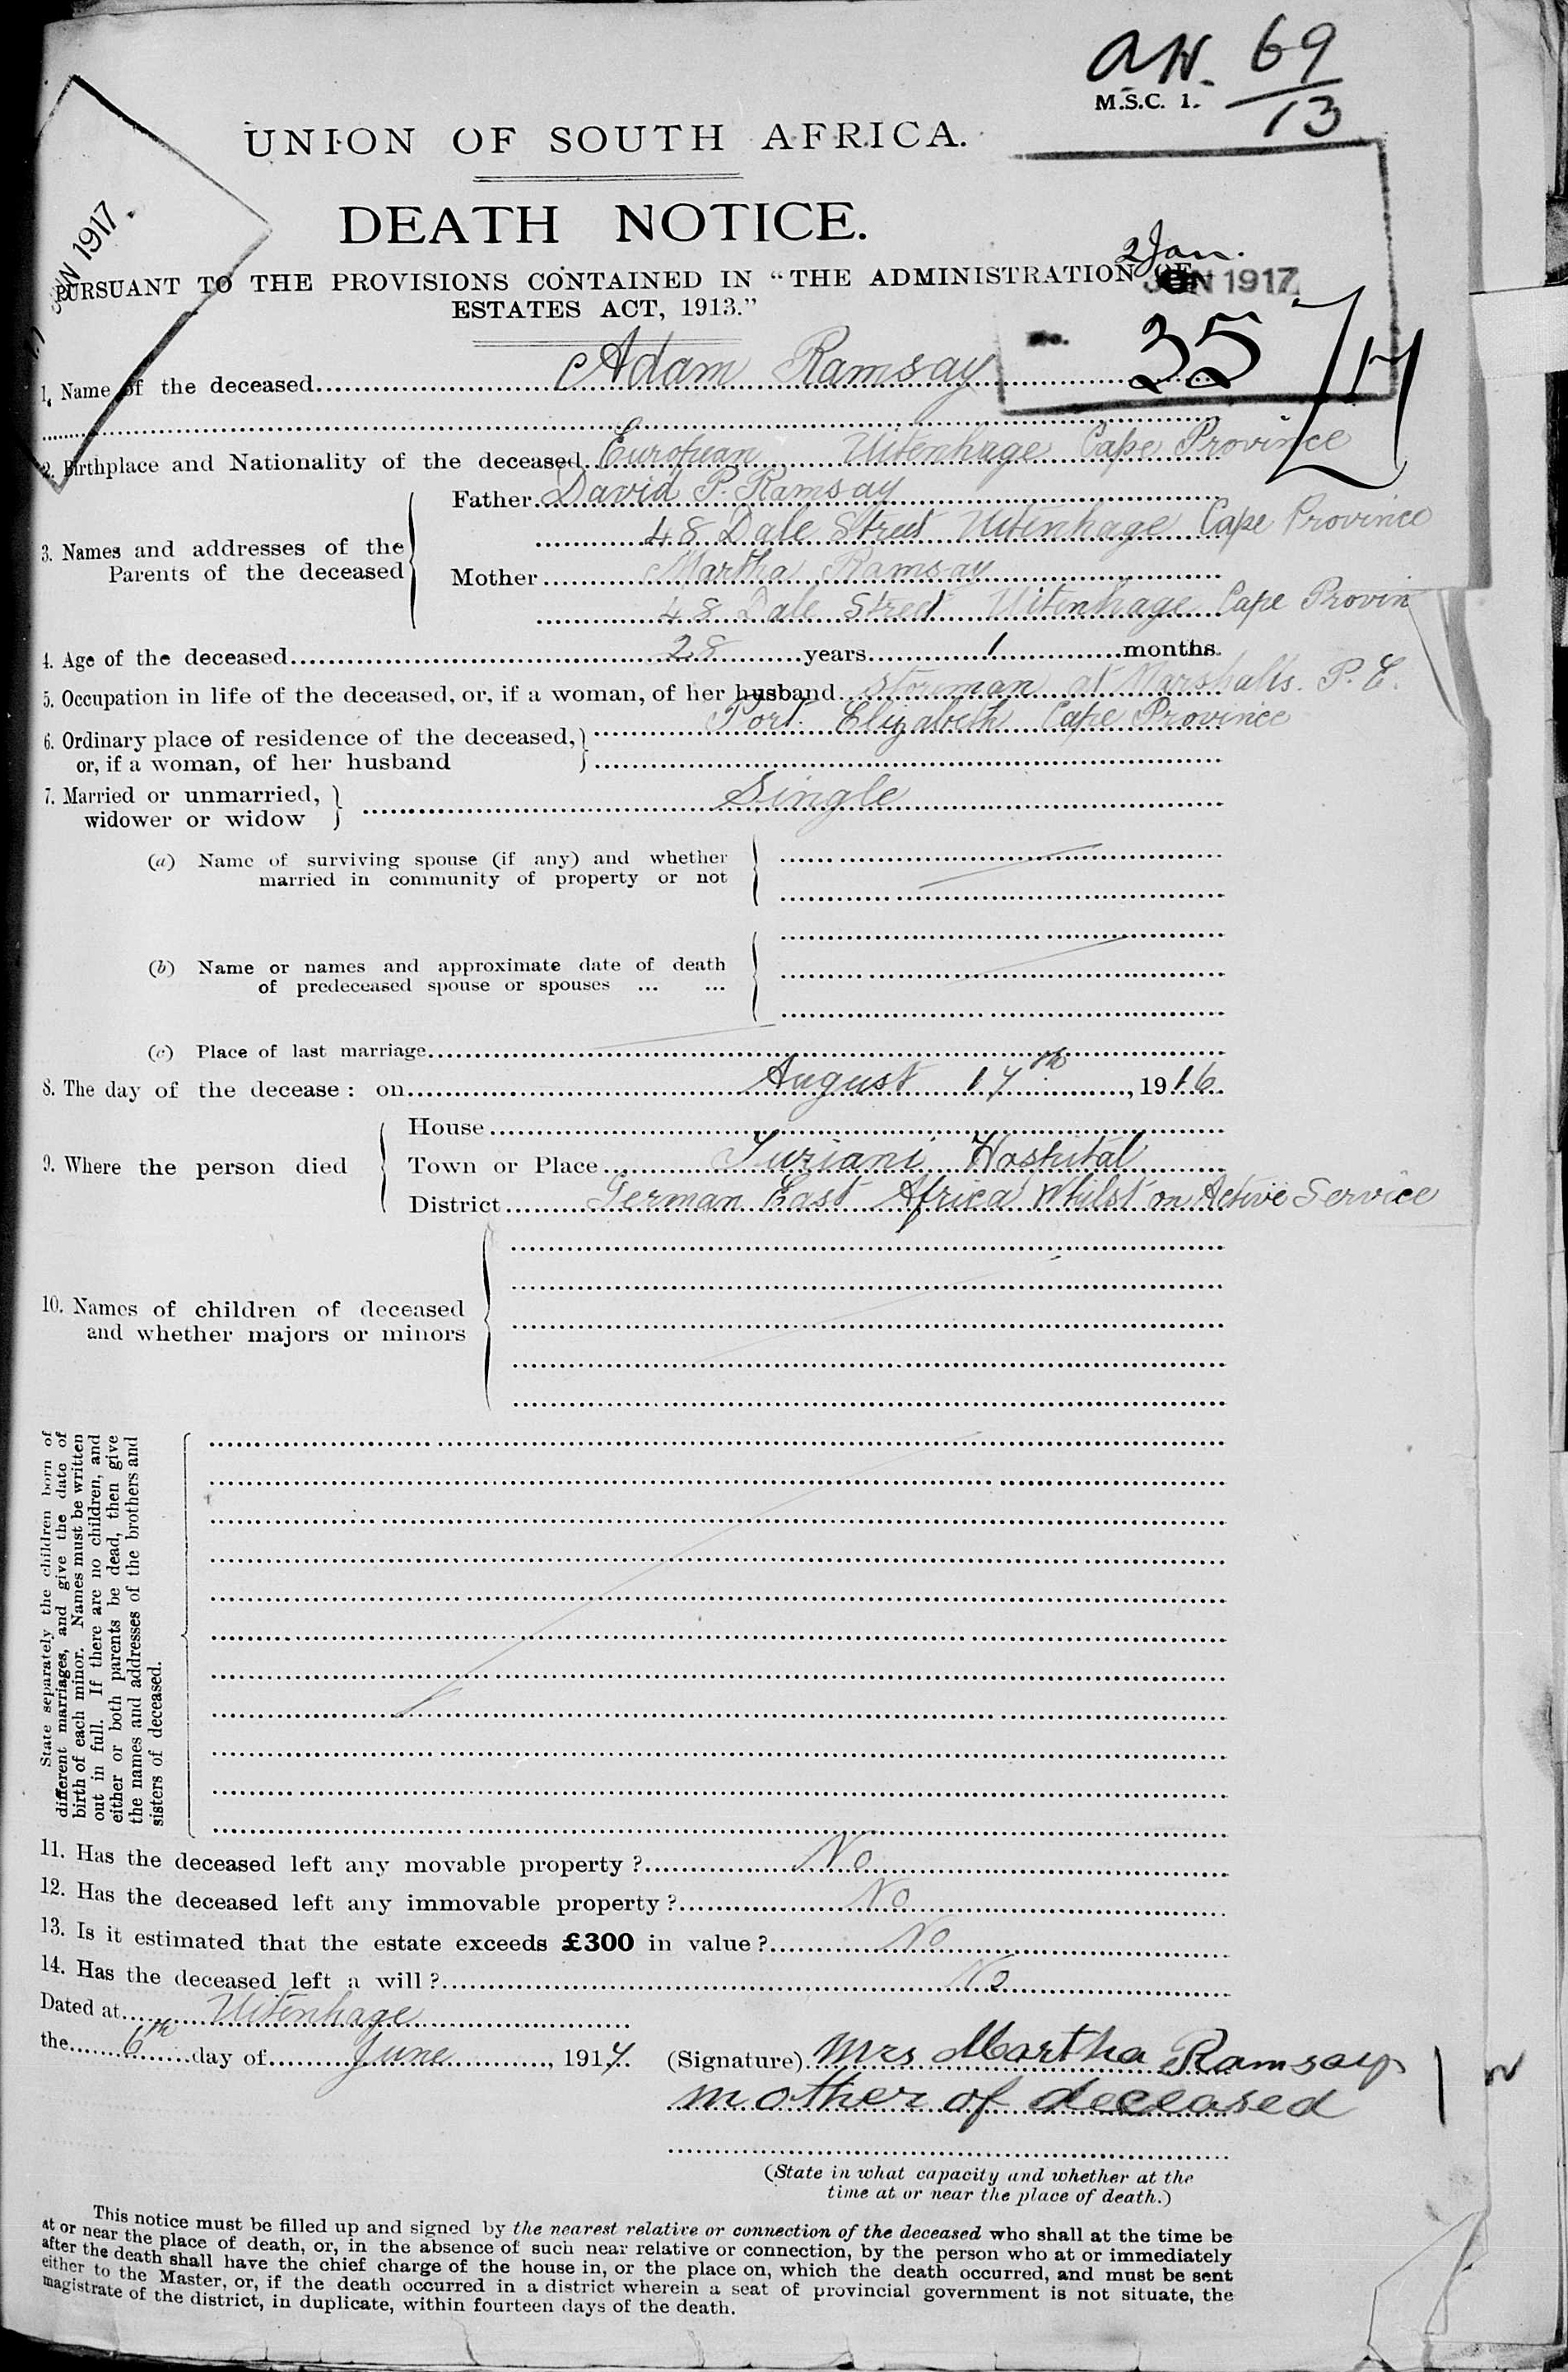 AN. 69/13
M.S.C. 1.
UNION OF SOUTH AFRICA.
DEATH NOTICE.
JUN 1917.
2 Jan.
PURSUANT TO THE PROVISIONS CONTAINED IN “THE ADMINISTRATION OF
JUN 1917
ESTATES ACT, 1913.”
No. 35
1. Name of the deceased Adam Ramsay
2. Birthplace and Nationality of the deceased European Uitenhage Cape Province
Father David P. Ramsay
48 Dale Street Uitenhage Cape Province
3. Names and addresses of the
Parents of the deceased
Mother Martha Ramsay
48 Dale Street Uitenhage Cape Provin
4. Age of the deceased 28 years 1 months.
5. Occupation in life of the deceased, or, if a woman, of her husband Storeman at Marshalls. P.E.
Port Elizabeth Cape Province
6. Ordinary place of residence of the deceased,
or, if a woman, of her husband
7. Married or unmarried, Single
widower or widow
(a) Name of surviving spouse (if any) and whether
married in community of property or not
(b) Name or names and approximate date of death
of predeceased spouse or spouses ... ...
(c) Place of last marriage
8. The day of the decease: on August 17th, 1916.
House
9. Where the person died Town or Place Turiani Hospital
District German East Africa Whilst on Active Service
10. Names of children of deceased
and whether majors or minors
State separately the children born of
different marriages, and give the date of
birth of each minor. Names must be written
out in full. If there are no children, and
either or both parents be dead, then give
the names and addresses of the brothers and
sisters of deceased.
11. Has the deceased left any movable property? No
12. Has the deceased left any immovable property? No
13. Is it estimated that the estate exceeds £300 in value? No
14. Has the deceased left a will? No
Dated at Uitenhage
the 6th day of June, 1917. (Signature) Mrs Martha Ramsay
mother of deceased
(State in what capacity and whether at the
time at or near the place of death.)
This notice must be filled up and signed by the nearest relative or connection of the deceased who shall at the time be
at or near the place of death, or, in the absence of such near relative or connection, by the person who at or immediately
after the death shall have the chief charge of the house in, or the place on, which the death occurred, and must be sent
either to the Master, or, if the death occurred in a district wherein a seat of provincial government is not situate, the
magistrate of the district, in duplicate, within fourteen days of the death.